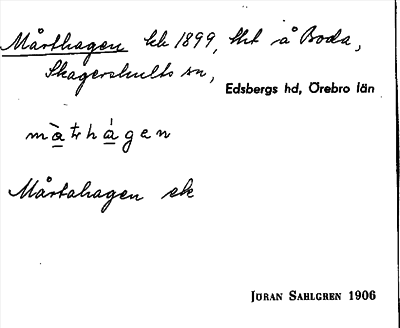 Mårthagen kk 1899, tht å Boda,
Skagershults sn,
Edsbergs hd, Örebro län
mà̱ţhá̱gen
Mårtahagen ek
JÖRAN SAHLGREN 1906